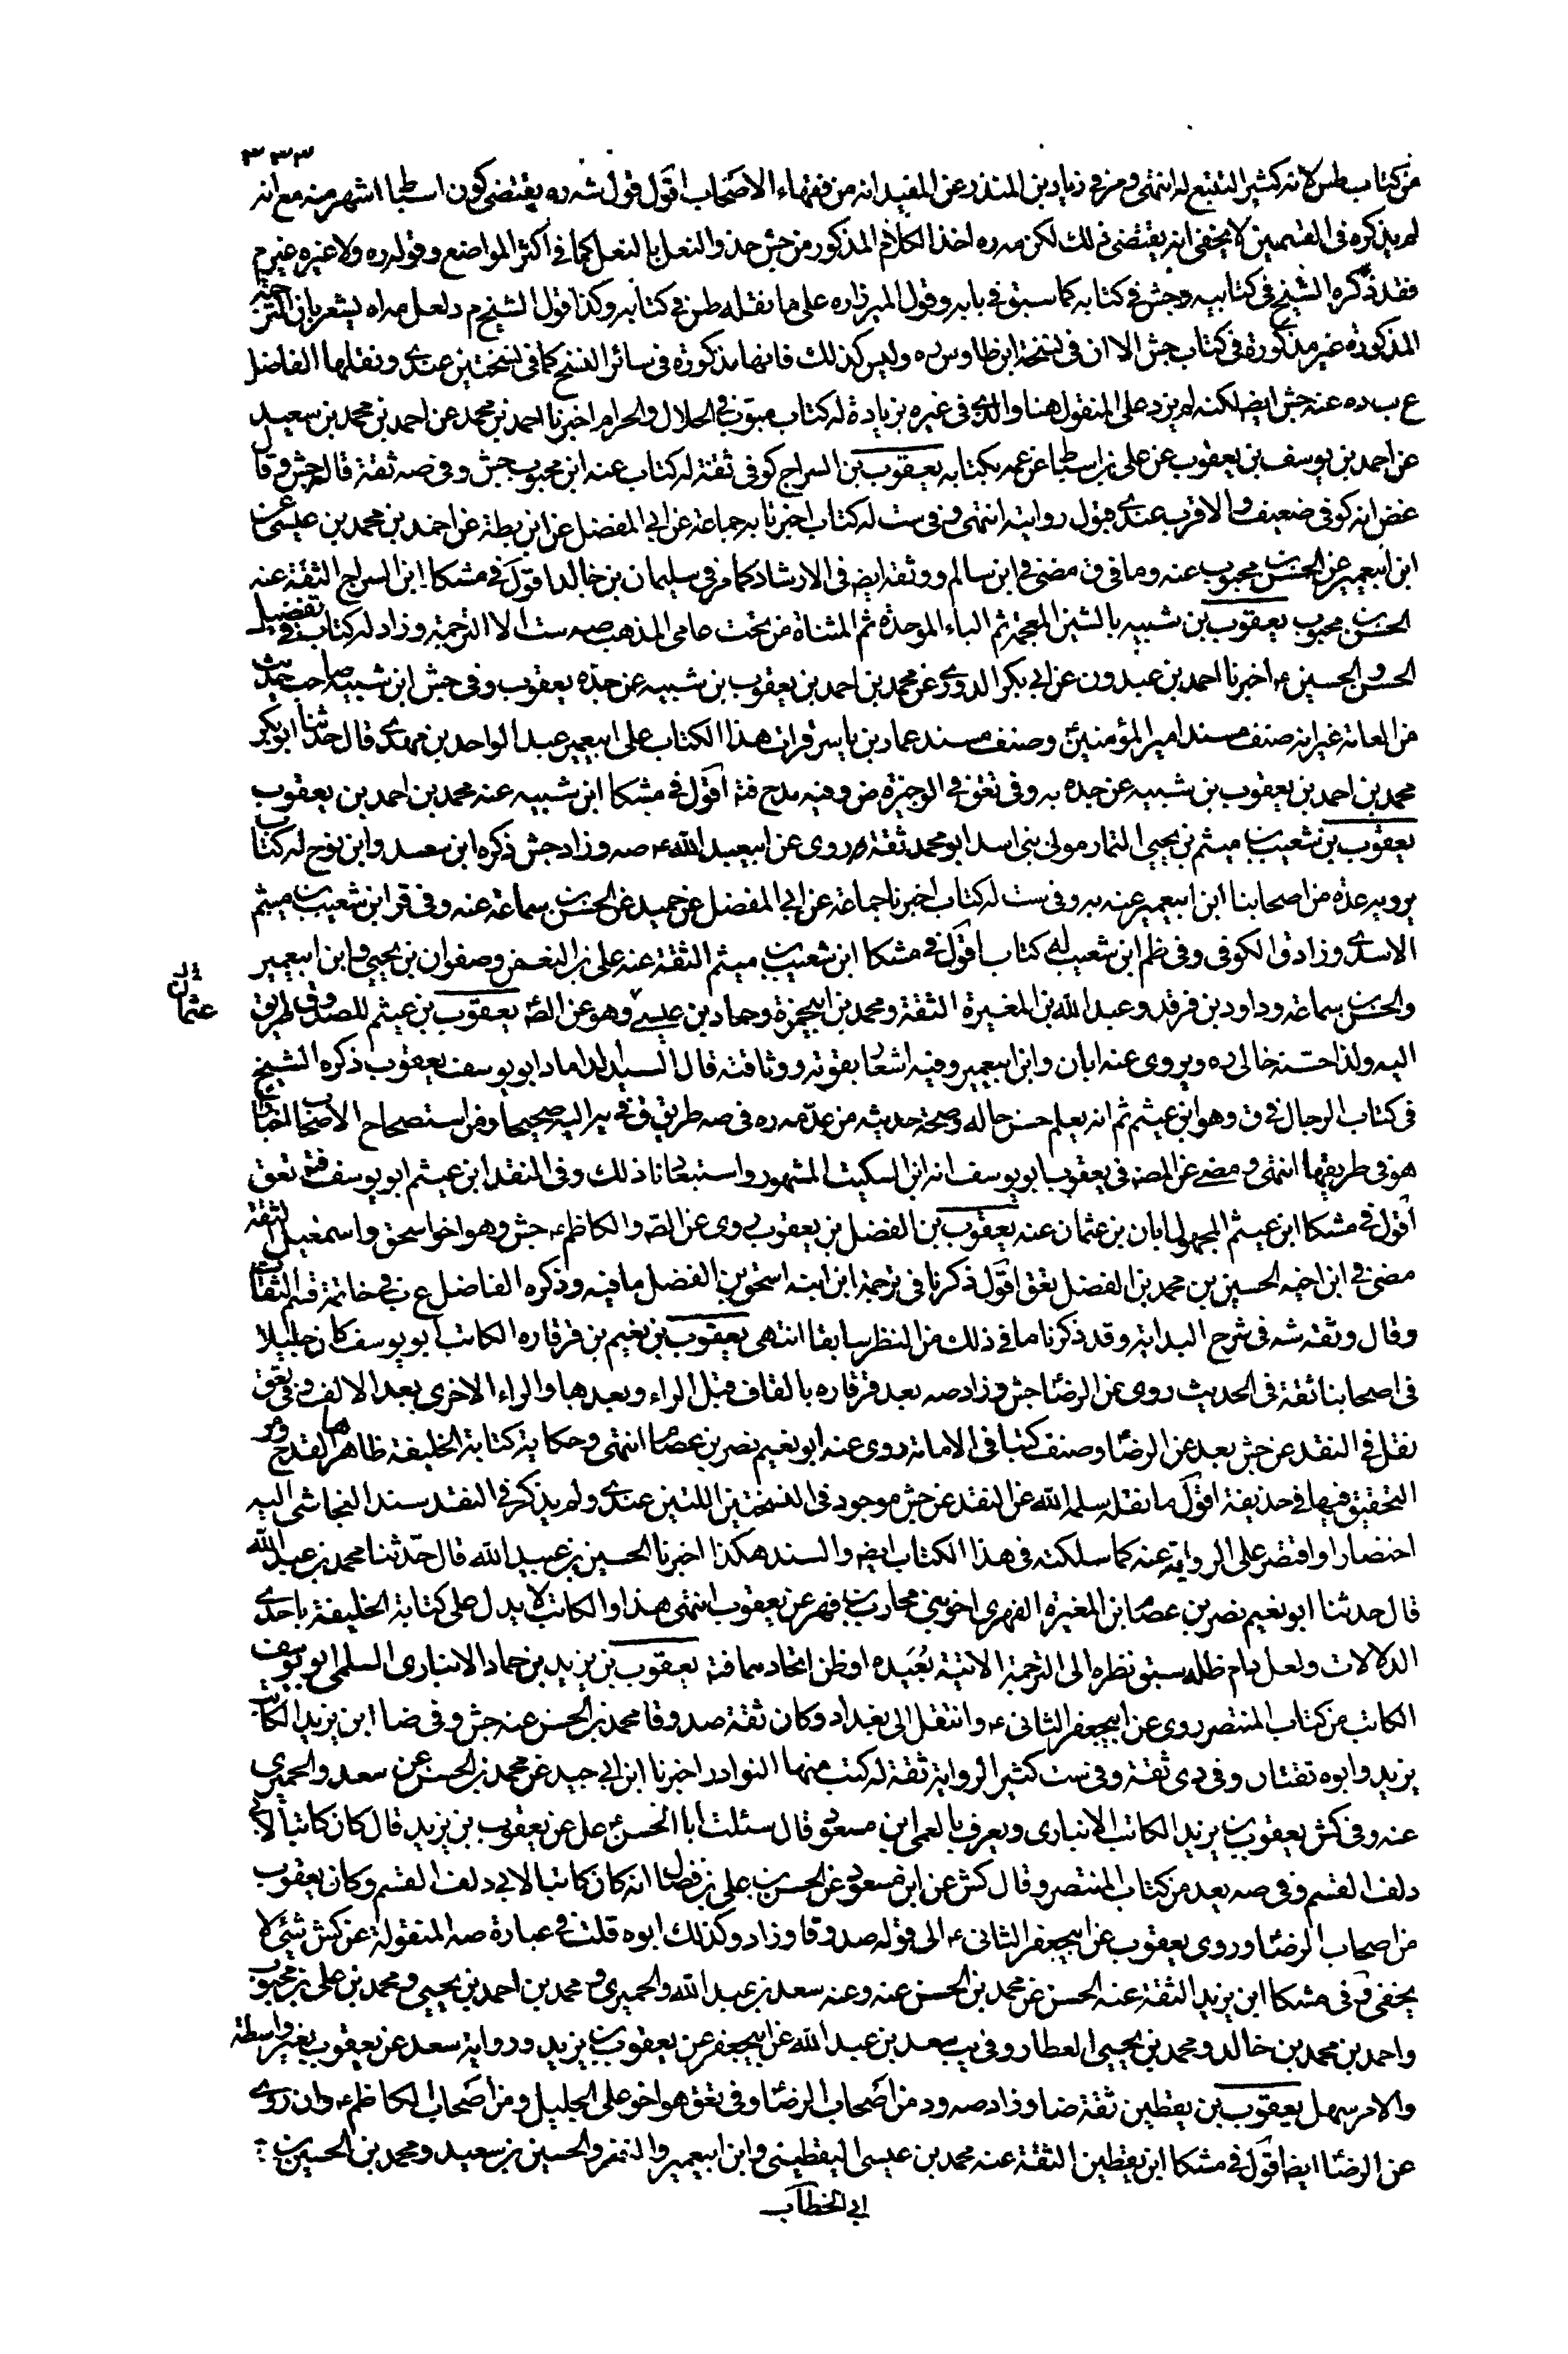 ٣٣٣
من كتاب طس لانه كثير التتبع له انتهى ومر في زياد بن المنذر عن المفيد انه من فقهاء الاصحاب اقول قول شه ره يقتضى كون اسباط اشهر منه مع انه
لم يذكره في القسمين لا يخفى انه يقتضى ذلك لكن مه ره اخذ الكلام المذكور من جش حذو النعل بالنعل كما في اكثر المواضع وقوله ره ولا غيره غير م
فقد ذكره الشيخ في كتابيه وجش في كتابه كما سبق في بابه وقول الميرزا ره على ما نقله طس في كتابه وكذا قول الشيخ م د لعل مراه يشعر بان الترجمة
المذكورة غير مذكورة في كتاب جش الا ان في نسخة ابن طاوس ره وليس كذلك فانها مذكورة في سائر النسخ كما في نسختين عندى ونقلها الفاضل
ع ب ده عنه جش ايض لكنه لم يزد على المنقول هنا والذى في غيره بزيادة له كتاب مبوب في الحلال والحرام اخبرنا احمد بن محمد عن احمد بن محمد بن سعيد
عن احمد بن يوسف بن يعقوب عن على بن اسباط عن عمه بكتابه يعقوب بن السراج كوفى ثقة له كتاب عنه ابن محبوب جش وفى صه ثقة قاله جش وقال
غض انه كوفى ضعيف والاقرب عندى قبول روايته انتهى وفى ست له كتاب اخبرنا به جماعة عن ابى المفضل عن ابن بطة عن احمد بن محمد بن عيسى عن
ابن ابيعمير عن الحسن بن محبوب عنه وما في ق مضى في ابن سالم ووثقه ايض في الارشاد كما مر في سليمان بن خالد اقول في مشكا ابن السراج الثقة عنه
الحسن بن محبوب يعقوب بن شيبه بالشين المعجمة ثم الباء الموحدة ثم المثناة من تحت عامى المذهب صه ست الا الترجمة وزاد له كتاب في تفضيل
الحسن والحسين ع اخبرنا احمد بن عبدون عن ابى بكر الدورى عن محمد بن احمد بن يعقوب بن شيبه عن جده يعقوب وفى جش ابن شيبه صاحب حديث
من العامة غير انه صنف مسند امير المؤمنين وصنف مسند عمار بن ياسر قرات هذا الكتاب على ابيعمير عبد الواحد بن مهدى قال حدثنا ابو بكر
محمد بن احمد بن يعقوب بن شيبه عن جده به وفى تعق في الوجيزة ض وفيه مدح فت اقول في مشكا ابن شيبه عنه محمد بن احمد بن يعقوب
يعقوب بن شعيب بن ميثم بن يحيى التمار مولى بنى اسد ابو محمد ثقة روى عن ابيعبد الله ع صه وزاد جش ذكره ابن سعد وابن نوح له كتاب
يرويه عدة من اصحابنا ابن ابيعمير عنه به وفى ست له كتاب اخبرنا جماعة عن ابى المفضل عن حميد عن الحسن بن سماعة عنه وفى قر ابن شعيب بن ميثم
الاسدى وزاد ق الكوفى وفى ظم ابن شعيب له كتاب اقول في مشكا ابن شعيب بن ميثم الثقة عنه على بن النعمن وصفوان بن يحيى وابن ابيعمير
والحسن بن سماعة وداود بن فرقد وعبد الله بن المغيرة الثقة ومحمد بن ابيحمزة وحماد بن عيسى وهو عن الصه يعقوب بن عيثم للصدوق طريق
خ ل عثمان
اليه ولذا حسنه خالى ره ويروى عنه ابان وابن ابيعمير وفيه اشعار بقوته ووثاقته قال السيد الداماد ابو يوسف يعقوب ذكره الشيخ
في كتاب الرجال في ق وهو ابن عيثم ثم انه يعلم حسن حاله وصحة حديثه من عدّ مه ره في صه طريق ق في يه اليه صحيحا ومن استصحاح الاصحاب اخبارا
هو في طريقها انتهى ومضى عن المصه في يعقوب ابو يوسف انه ابن السكيت المشهور واستبعادنا ذلك وفى النقد ابن عيثم ابو يوسف فت تعق
اقول في مشكا ابن عيثم المجهول ابان بن عثمان عنه يعقوب بن الفضل بن يعقوب روى عن الصه والكاظم ع جش وهو اخو اسحق واسمعيل الثقة
مضى في ابن اخيه الحسين بن محمد بن الفضل تعق اقول ذكرنا في ترجمة ابن ابنه اسحق بن الفضل ما فيه وذكره الفاضل ع ب في خاتمة قسم الثقات
وقال وثقه شه في شرح البداية وقد ذكرنا ما في ذلك من النظر سابقا انتهى يعقوب بن نعيم بن قرقاره الكاتب ابو يوسف كان جليلا
في اصحابنا ثقة في الحديث روى عن الرضا جش وزاد صه بعد قرقاره بالقاف قبل الراء وبعدها والراء الاخرى بعد الالف وفى تعق
نقل في النقد عن جش بعد عن الرضا وصنف كتابا في الامامة روى عنه ابو نعيم نصر بن عصام انتهى وحكاية كتابة الخليفة ظاهرها القدح ومر
التحقيق فيها في حذيفة اقول ما نقله سلمه الله عن النقد عن جش موجود في النسختين اللتين عندى ولم يذكر في النقد سند النجاشى اليه
اختصارا واقتصر على الرواية عنه كما سلكته في هذا الكتاب ايض والسند هكذا اخبرنا الحسين بن عبيد الله قال حدثنا محمد بن عبد الله
قال حدثنا ابو نعيم نصر بن عصام ابن المغيرة الفهرى اخو بنى محارب بن فهر عن يعقوب انتهى هذا والكاتب لا يدل على كتابة الخليفة باحدى
الدلالات ولعل دام ظله سبق نظره الى الترجمة الاتية بعيده او ظن اتحادهما فت يعقوب بن يزيد بن حماد الانبارى السلمى ابو يوسف
الكاتب من كتاب المنتصر روى عن ابيجعفر الثانى ع وانتقل الى بغداد وكان ثقة صدوقا محمد بن الحسن عنه جش وفى ضا ابن يزيد الكاتب
يزيد وابوه ثقتان وفى دى ثقة وفى ست كثير الرواية ثقة له كتب منها النوادر اخبرنا ابن ابى جيد عن محمد بن الحسن عن سعد والحميرى
عنه وفى كش يعقوب بن يزيد الكاتب الانبارى ويعرف بالعمى ابن مسعود قال سئلت ابا الحسن على عن يعقوب بن يزيد قال كان كاتبا لابى
دلف القسم وفى صه بعد من كتاب المنتصر وقال كش عن ابن مسعود عن الحسن بن على بن فضال انه كان كاتبا لابى دلف القسم وكان يعقوب
من اصحاب الرضا وروى يعقوب عن ابيجعفر الثانى ع الى قوله صدوقا وزاد وكذلك ابوه قلت في عبارة صه المنقولة عن كش شئ لا
يخفى وفى مشكا ابن يزيد الثقة عنه الحسن عن محمد بن الحسن عنه وعنه سعد بن عبد الله والحميرى ومحمد بن احمد بن يحيى ومحمد بن على بن محبوب
واحمد بن محمد بن خالد ومحمد بن يحيى العطار وفى يب سعد بن عبد الله عن ابيجعفر عن يعقوب بن يزيد ورواية سعد عن يعقوب بغير واسطة
والامر سهل يعقوب بن يقطين ثقة ضا وزاد صه ود من اصحاب الرضا وفى تعق هو اخو على الجليل ومن اصحاب الكاظم ع وان روى
عن الرضا ايض اقول في مشكا ابن يقطين الثقة عنه محمد بن عيسى اليقطينى وابن ابيعمير والنضر والحسين بن سعيد ومحمد بن الحسين بن
ابى الخطاب